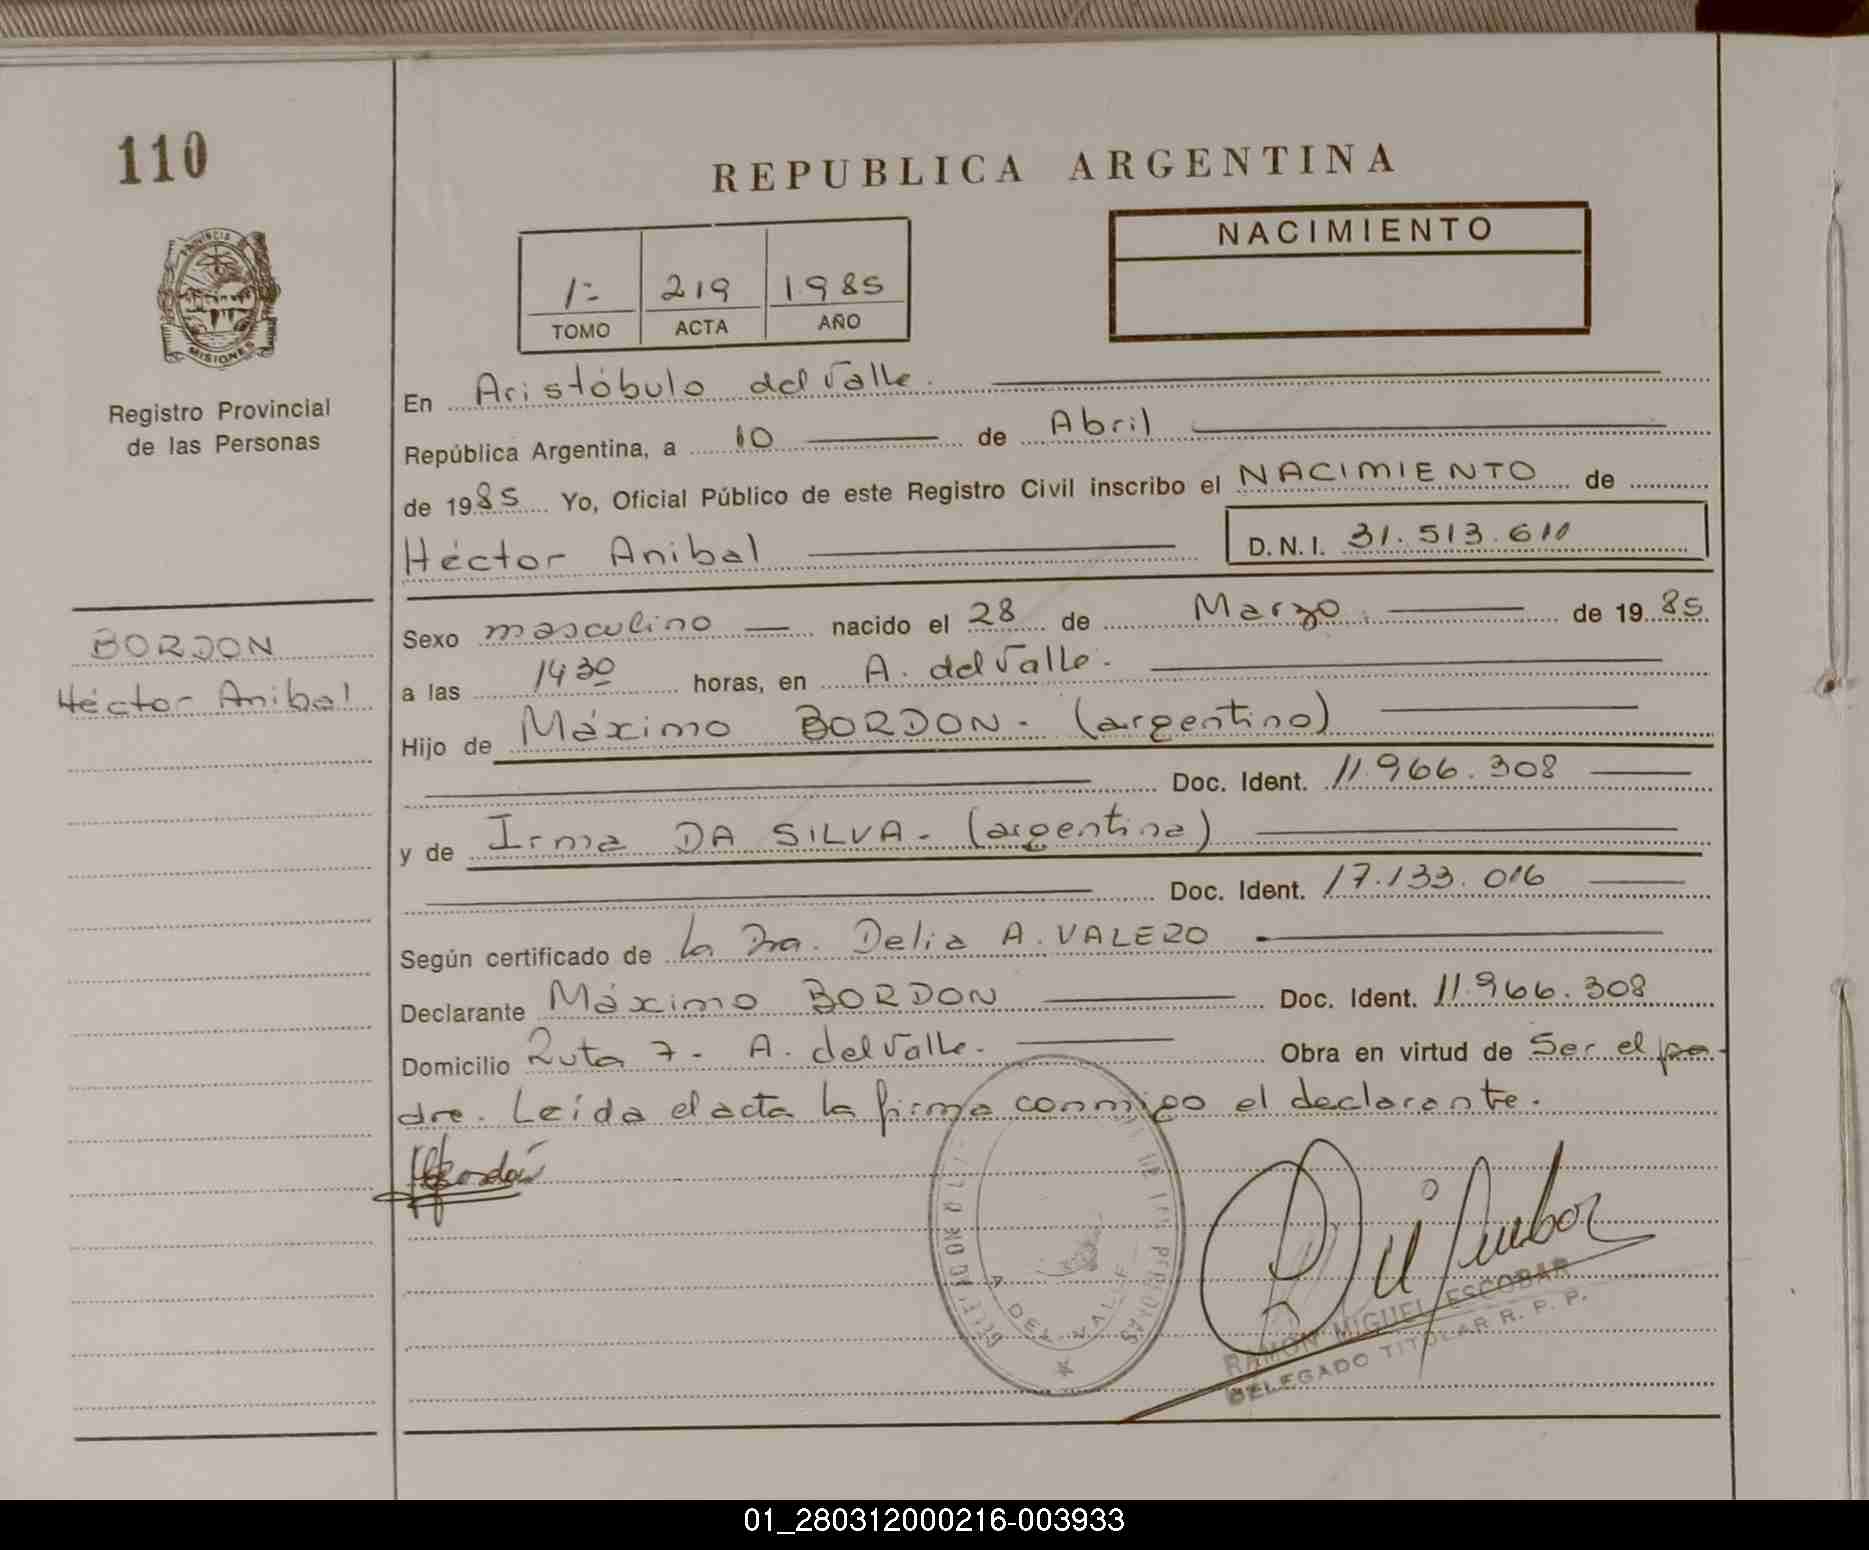 110
PROVINCIA
MISIONES
Registro Provincial
de las Personas
BORDON
Héctor Anibal
REPUBLICA ARGENTINA
1- 219 1985
TOMO ACTA AÑO
NACIMIENTO
En Aristóbulo del Valle.
República Argentina, a 10 de Abril
de 1985 Yo, Oficial Público de este Registro Civil inscribo el NACIMIENTO de
Héctor Anibal D.N.I. 31.513.610
Sexo masculino nacido el 28 de Marzo. de 1985
a las 1430 horas, en A. del Valle.
Hijo de Máximo BORDON - (argentino)
Doc. Ident. 11.966.308
y de Irma DA SILVA - (argentina)
Doc. Ident. 17.133.016
Según certificado de la Dra. Delia A. VALEZO
Declarante Máximo BORDON Doc. Ident. 11.966.308
Domicilio Ruta 7 - A. del Valle. Obra en virtud de Ser el pa-
dre. Leída el acta la firma conmigo el declarante.
A. DEL VALLE
RAMON MIGUEL ESCOBAR
DELEGADO TITULAR R. P. P.
01_280312000216-003933